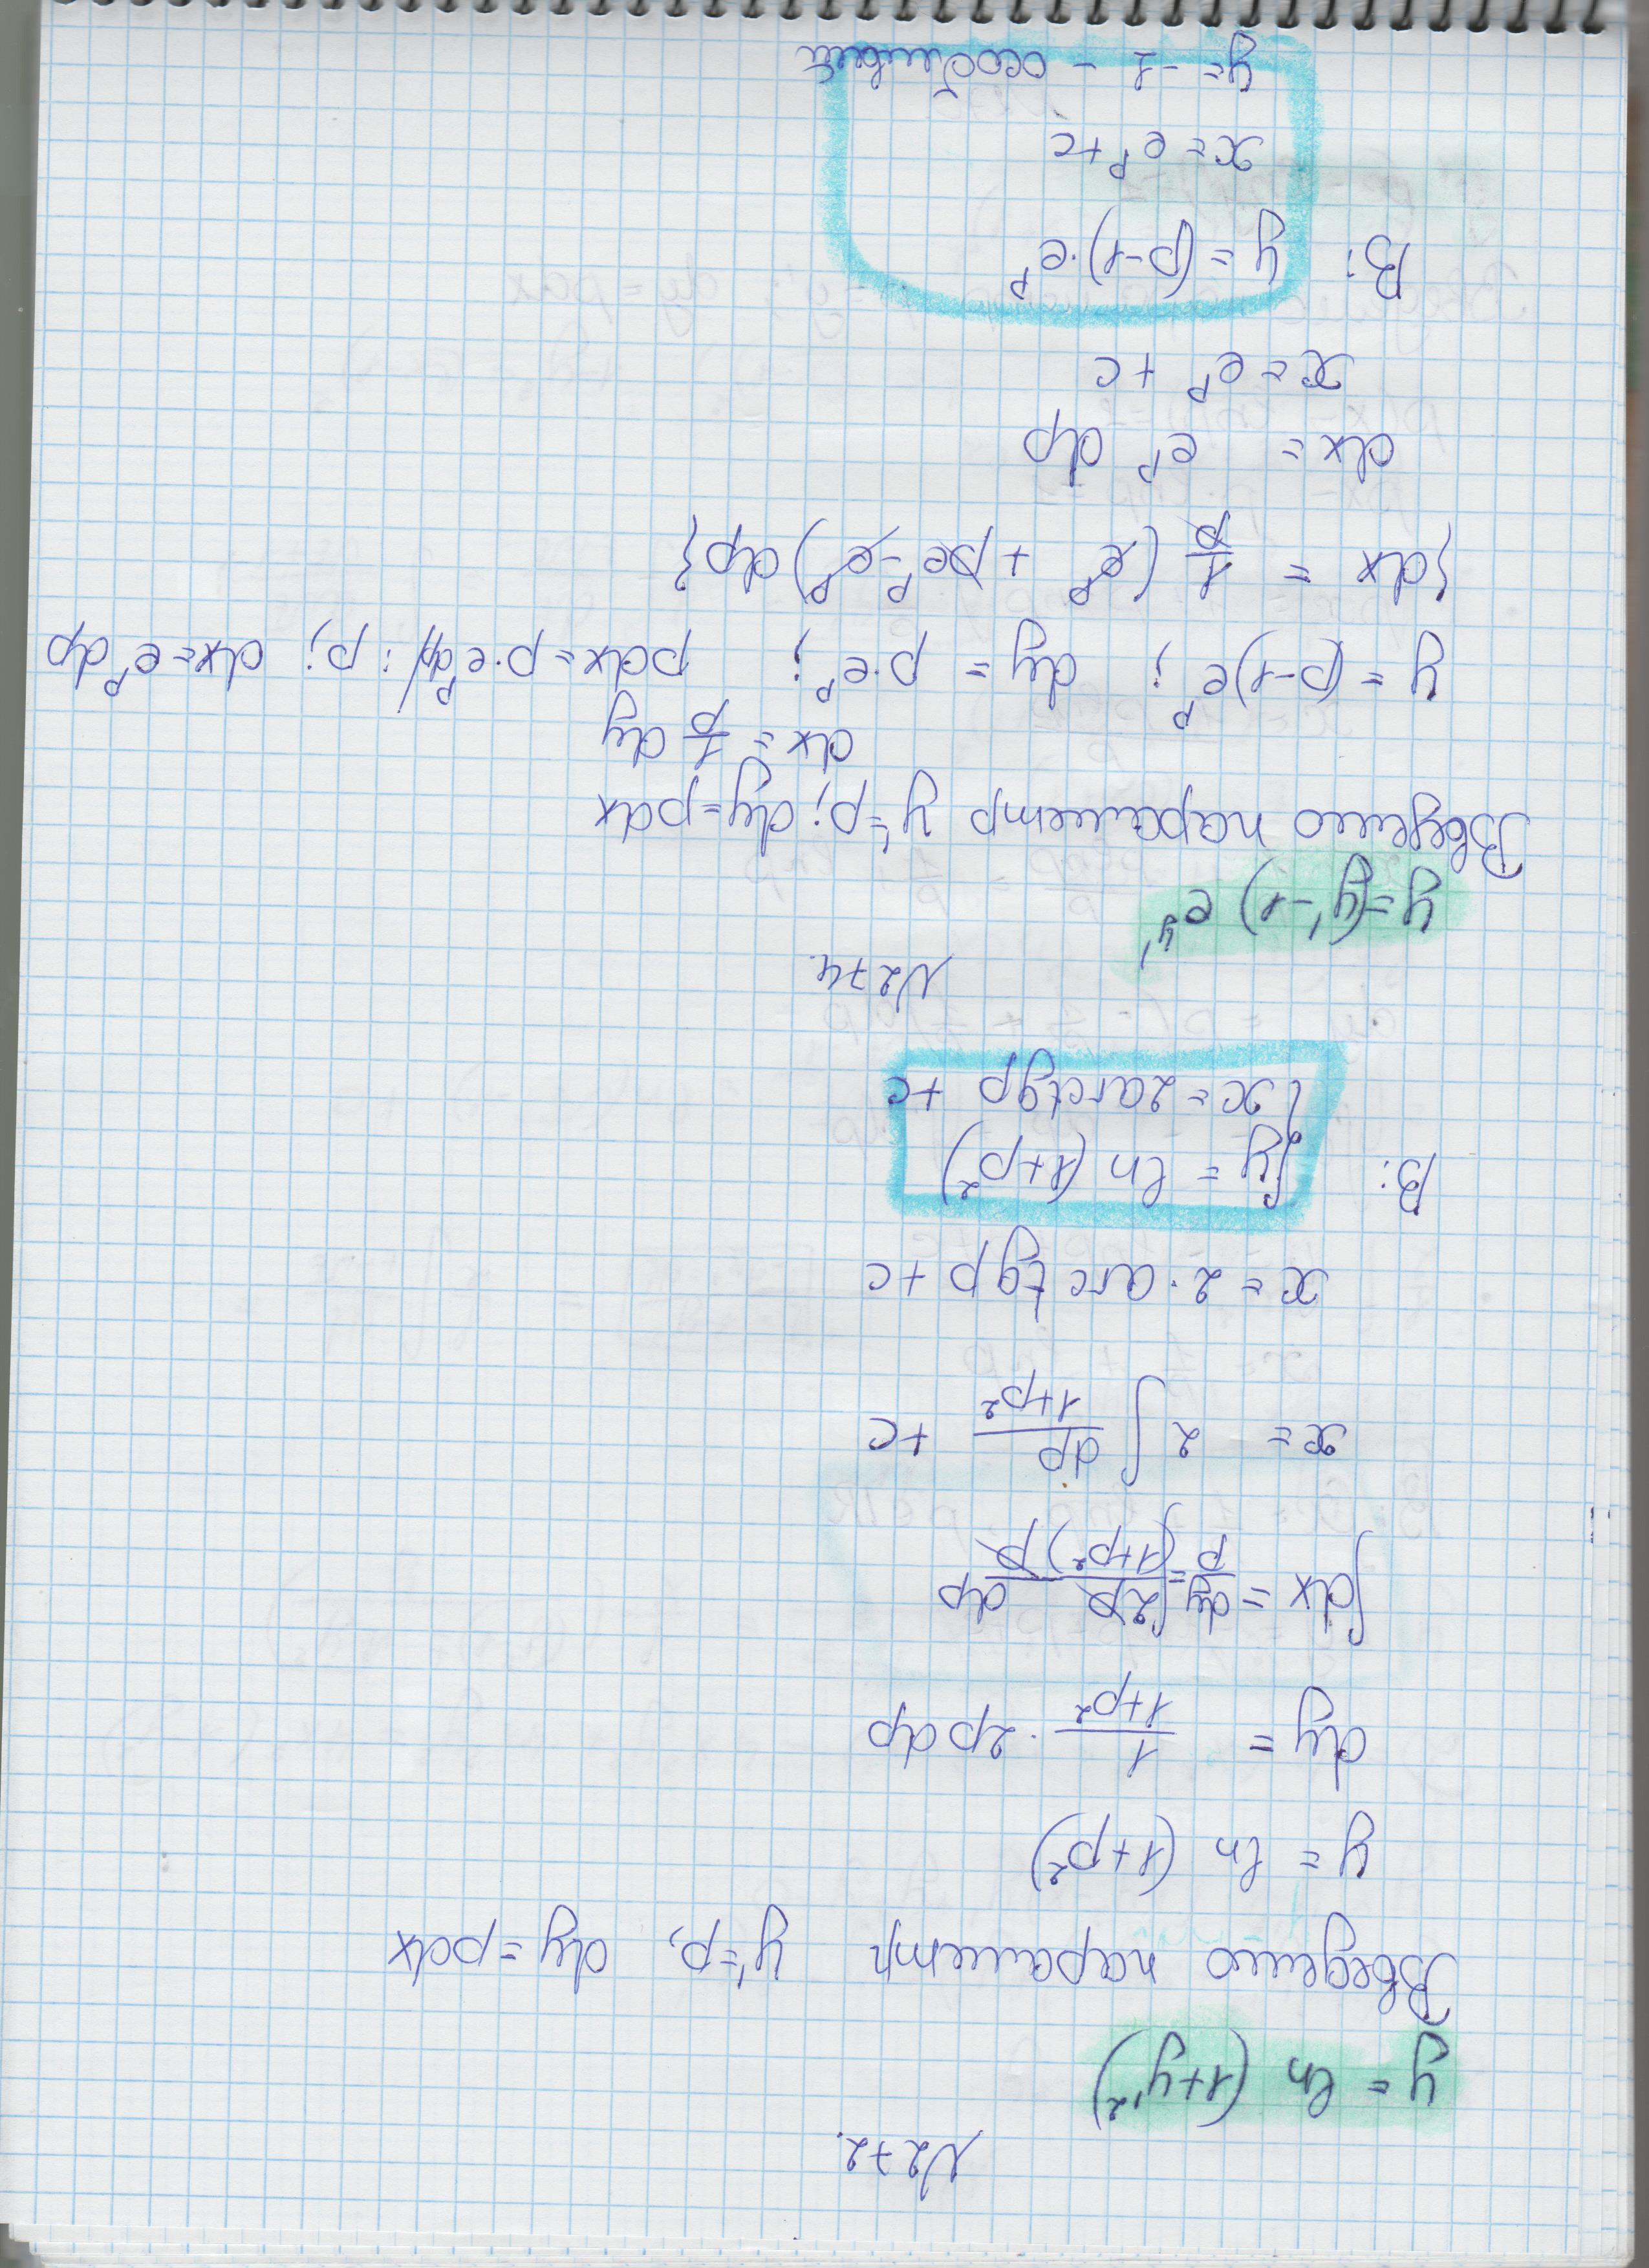 N272.
y = ln (1+y'²)
Введемо параметр y'=p, dy=pdx
y = ln (1+p²)
dy = 1/(1+p²) · 2p dp
∫dx = dy/p = ∫2p/((1+p²)p) dp
x = 2 ∫ dp/(1+p²) +c
x = 2·arctgp +c
В: {y = ln (1+p²)
x = 2arctgp +c
N274.
y=(y'-1) e^y'
Введемо параметр y'=p; dy=pdx
dx = 1/p dy
y = (p-1)e^p ; dy = p·e^p ; pdx=p·e^p dp/ : p; dx=e^p dp
{dx = 1/p (e^p + pe^p-e^p) dp}
dx = e^p dp
x=e^p +c
В: y = (p-1)·e^p
x=e^p+c
y=-1 -